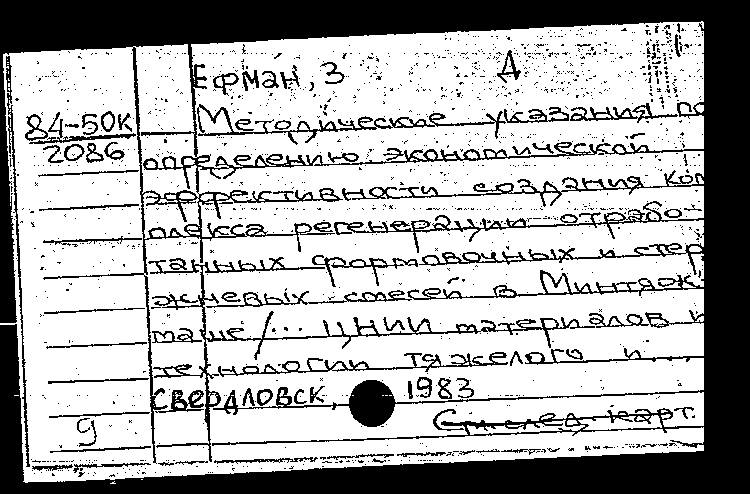 Ефман, З Д
84-50К Методические указания по
2086 определению экономической
эффективности создания ком
плекса регенерации отрабо-
танных формовочных и стер
жневых смесей в Минтяж
маше/... ЦНИИ материалов и
технологии тяжелого и...
Свердловск, 1983
9 См. след. карт.